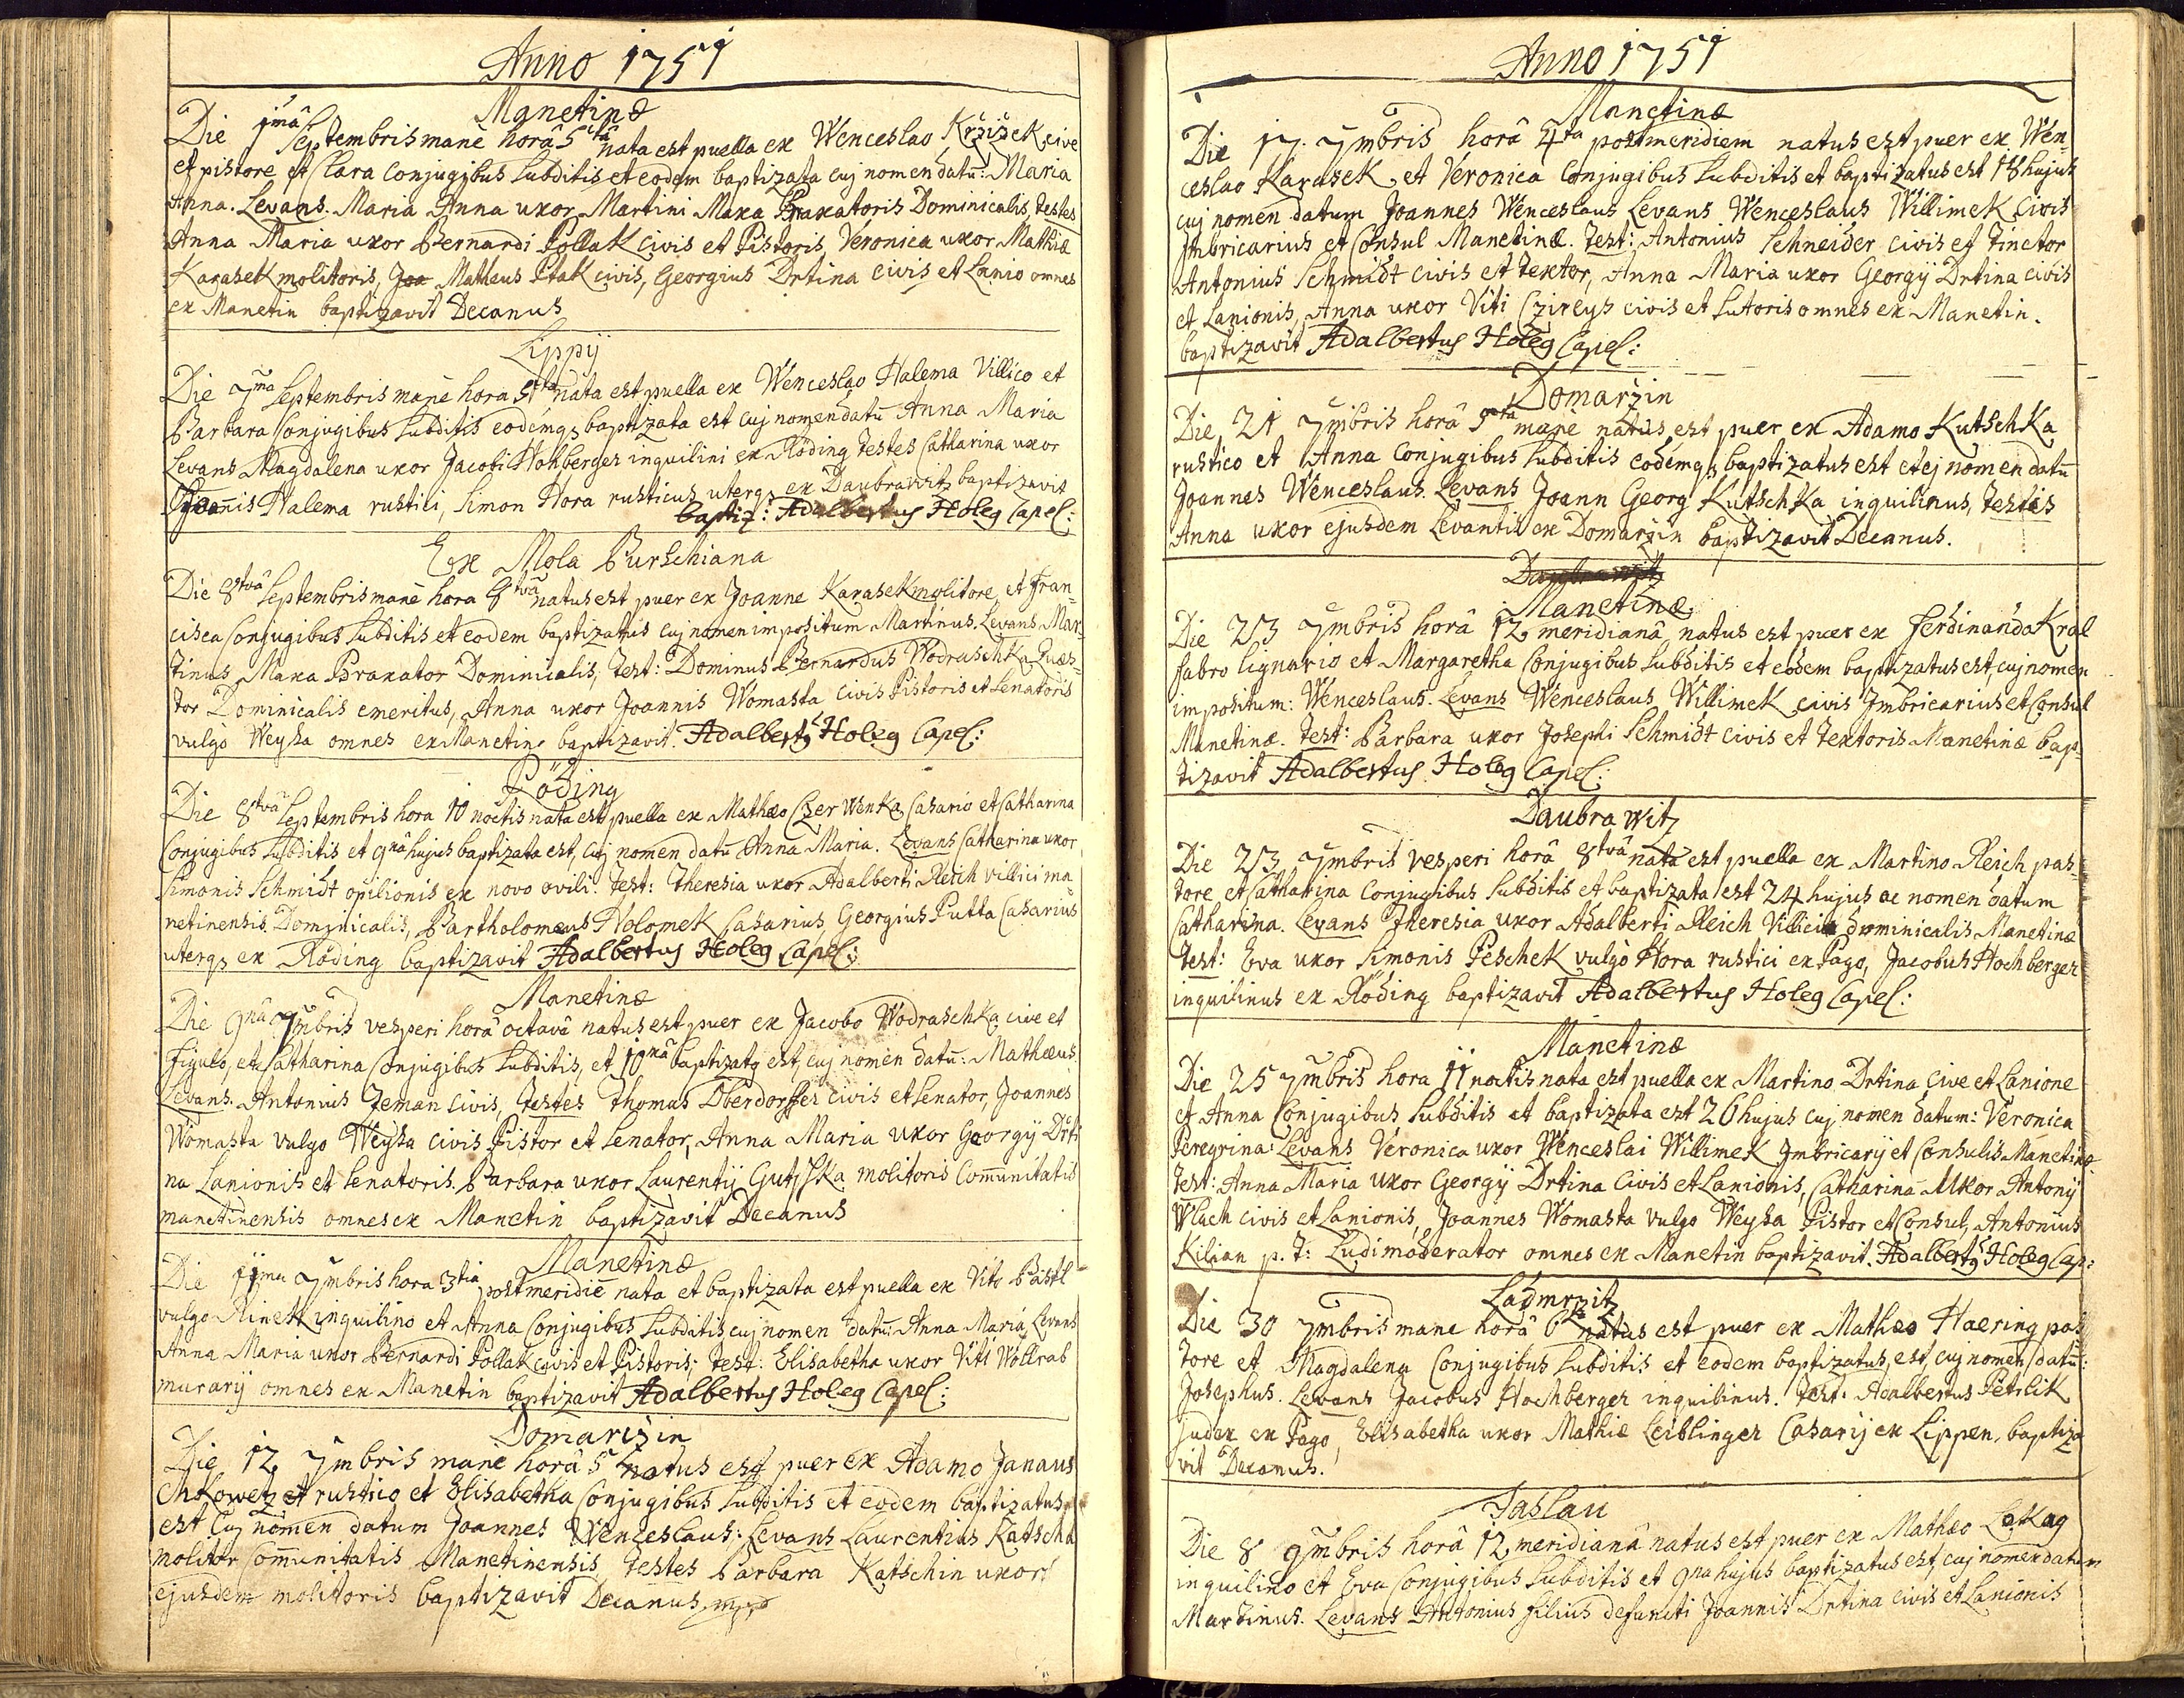 Anno 1751
Manetinæ
Die 7mâ Septembris manè horâ 5tâ nata est puella ex Wenceslao Kržižek cive
et pistore et Clara Conjugibus Subditis et eodem baptizata cuj nomen datū: Maria
Anna. Levans. Maria Anna uxor Martini Maxa Braxatoris Dominicalis, testes
Anna Maria uxor Bernardi Pollak Civis et Pistoris, Veronica uxor Mathiæ
Karasek molitoris, Joa Matheus Ptak civis, Georgius Drtina civis et Lanio omnes
ex Manetin baptizavit Decanus
Lippÿ
Die 7ma Septembris manè hora 5ta nata est puella ex Wenceslao Halema Villico et
Barbara Conjugibus Subditis eodémqs baptizata est cuj nomen datū Anna Maria
Levans Magdalena uxor Jacobi Hohberger inquilini ex Röding testes Catharina uxor
Joañis Halema rustici, Simon Hora rusticus uterqs ex Daubrawitz baptizavit
baptiz: Adalbertus Holeg Capel:
Ex Mola Burschiana
Die 8tvâ Septembris manè hora 8tvâ natus est puer ex Joanne Karasek molitore, et Fran-
cisca Conjugibus Subditis et eodem baptizatus cuj nomen impositum Martinus. Levans Mar-
tinus Maxa Braxator Dominicalis, Test: Dominus Bernardus Wodraschka Quæs-
tor Dominicalis emeritus, Anna uxor Joannis Womasta Civis Pistoris et Senatoris
vulgò Weyssa omnes ex Manetin baptizavit. Adalbertq Holeg Capel:
Röding
Die 8tvâ Septembris hora 10 noctis nata est puella ex Mathæo Czerwenka Casario et Catharina
Conjugibus Subditis et 9nâ hujus baptizata est, cuj nomen datū Anna Maria. Levans Catharina uxor
Simonis Schmidt opilionis ex novo ovili. Test: Theresia uxor Adalberti Reich villici ma-
netinensis Dominicalis, Bartholomæus Holomek Casarius, Georgius Putta Casarius
uterqs ex Röding baptizavit Adalbertus Holeg Capel:
Manetinæ
Die 9nâ 7mbris vesperi horâ octavâ natus est puer ex Jacobo Wodraschka cive et
figulo, et Catharina Conjugibus Subditis, et 10mâ baptizatq est, cuj nomen datū: Mathæus.
Levans. Antonius Zeman Civis, Testes Thomas Oberdorffer civis et Senator, Joannes
Womasta vulgo Weyssa civis Pistor et Senator, Anna Maria uxor Georgÿ Drti
na Lanionis et Senatoris. Barbara uxor Laurentÿ molitoris Com̄unitatis
manetinensis omnes ex Manetin baptizavit Decanus
Manetinæ
Die 11ma 7mbris hora 3tia postmeridiē nata et baptizata est puella ex Vito Bastl
vulgo Rinek inquilino et Anna Conjugibus Subditis cuj nomen datū: Anna Maria Levans
Anna Maria uxor Bernardi Pollak civis et Pistoris; Test: Elisabetha uxor Viti Wollrab
murarÿ omnes ex Manetin baptizavit Adalbertus Holeg Capel:
Domaržin
Die 12 7mbris manè horâ 5ta natus est puer ex Adamo Janaus
chkowetz et rustico et Elisabetha Conjugibus Subditis et eodem baptizatus
est Cuj nomen datum Joannes Wenceslaus: Levans Laurentius Katscha
molitor Com̄unitatis Manetinensis, testes Barbara Katschin uxor
ejusdem molitoris baptizavit Decanus mpp
Anno 1751
Manetinæ
Die 17. 7mbris horâ 4ta postmeridiem natus est puer ex Wen
ceslao Karasek et Veronica Conjugibus Subditis et baptizatus est 18 hujus
cuj nomen datum Joannes Wenceslaus Levans Wenceslaus Willimek Civis
Imbricarius et Consul Manetinæ. Test: Antonius Schneider civis et Tinctor
Antonius Schmidt civis et textor, Anna Maria uxor Georgÿ Drtina civis
et Lanionis, Anna uxor Viti Czireys civis et Sutoris omnes ex Manetin.
baptizavit Adalbertus Holeg Capel:
Domaržin
Die 21 7mbris horâ 5ta manè natus est puer ex Adamo Kutschka
rustico et Anna Conjugibus Subditis eodémqs baptizatus est et ej nomen datū
Joannes Wenceslaus. Levans Joann Georg Kutschka inquilinus, Testis
Anna uxor ejusdem Levantis ex Domaržin baptizavit Decanus.
Daubrawitz
Manetinæ
Die 23 7mbris horâ 12 meridianâ natus est puer ex Ferdinando Kral
fabro lignario et Margaretha Conjugibus Subditis et eodem baptizatus est, cuj nomen
impositum: Wenceslaus. Levans Wenceslaus Willimek civis Imbricarius et Consul
Manetinæ. Test: Barbara uxor Josephi Schmidt civis et textoris Manetinæ bap-
tizavit Adalbertus Holeg Capel:
Daubrawitz
Die 23 7mbris vesperi horâ 8tvâ nata est puella ex Martino Reich pas-
tore et Catharina Conjugibus Subditis et baptizata est 24 hujus ac nomen datum
Catharina. Levans Theresia uxor Adalberti Reich Villici dominicalis Manetinæ
Test: Eva uxor Simonis Peschek vulgò Hora rustici ex Pago, Jacobus Hochberger
inquilinus ex Röding baptizavit Adalbertus Holeg Capel:
Manetinæ
Die 25 7mbris hora 11 noctis nata est puella ex Martino Drtina Cive et Lanione
et Anna Conjugibus Subditis et baptizata est 26 hujus cuj nomen datum: Veronica
Peregrina: Levans Veronica uxor Wenceslai Willimek Imbricarÿ et Consulis Manetinæ
Test: Anna Maria uxor Georgÿ Drtina Civis et Lanionis, Catharina uxor Antonÿ
Wlach civis et Lanionis, Joannes Womasta vulgo Weyssa Pistor et Consul, Antonius
Kilian p. t: Ludimoderator omnes ex Manetin baptizavit. Adalbertq Holeg Cap:
Ladmržitz
Die 30 7mbris mane horâ 6ta natus est puer ex Mathæo Haering pas
tore et Magdalena Conjugibus Subditis et eodem baptizatus est, cuj nomen datū:
Josephus. Levans Jacobus Hochberger inquilinus. Test: Adalbertus Petrlik
judex ex Pago, Elisabetha uxor Mathiæ Leiblinger Casarÿ ex Lippen, baptiza
vit Decanus.
Jaslau
Die 8 9mbris horâ 12 meridianâ natus est puer ex Mathæo Lekag
inquilino et Eva Conjugibus Subditis et 9na hujus baptizatus est, cuj nomen datum
Martinus. Levans Antonius filius defuncti Joannis Drtina civis et Lanionis